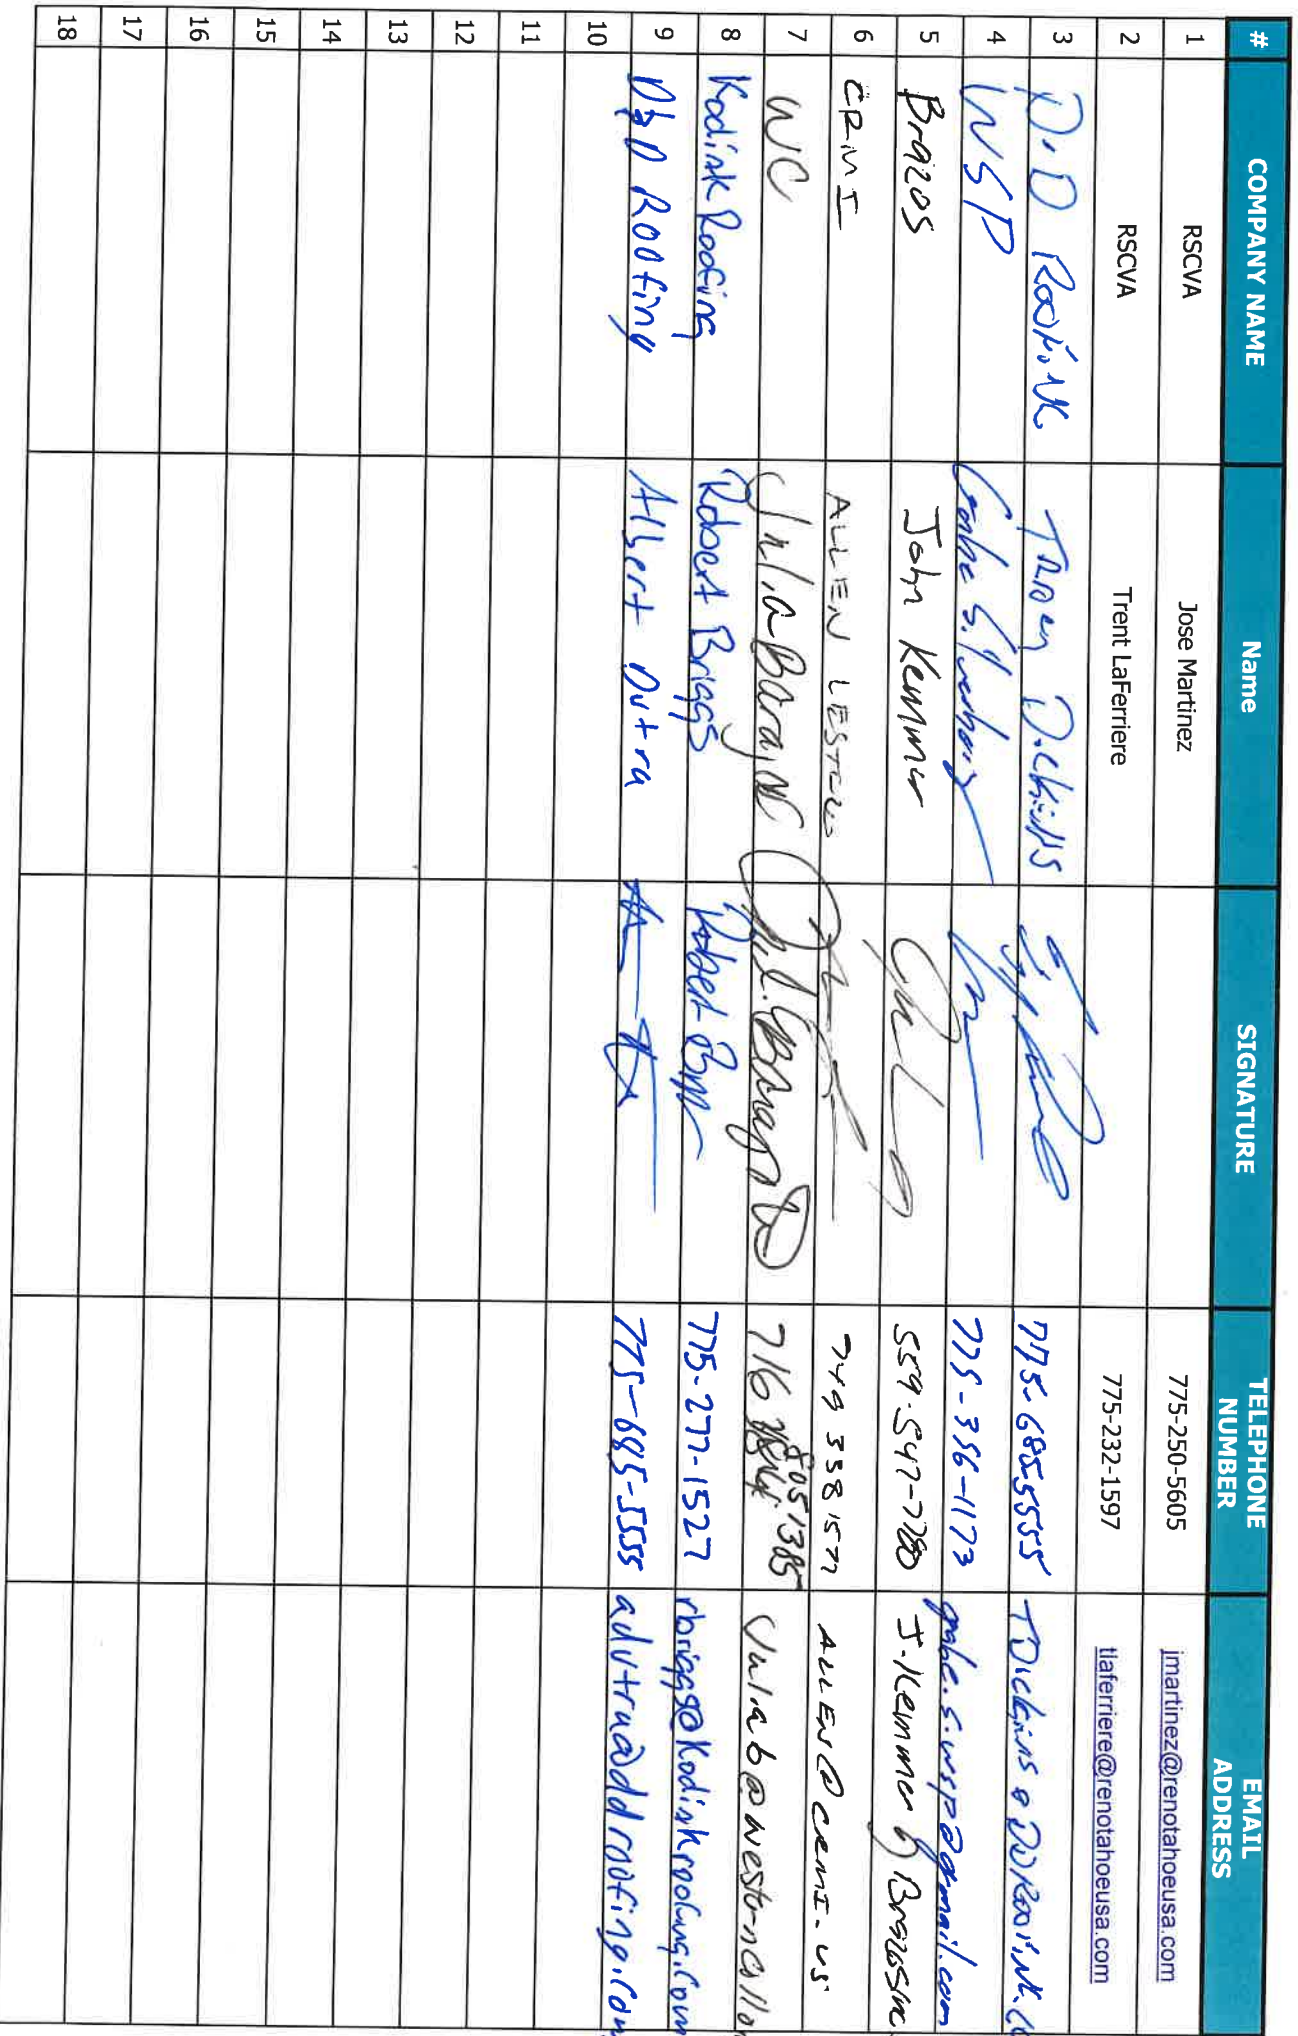 # COMPANY NAME Name SIGNATURE TELEPHONE NUMBER EMAIL ADDRESS
1 RSCVA Jose Martinez 775-250-5605 jmartinez@renotahoeusa.com
2 RSCVA Trent LaFerriere 775-232-1597 tlaferriere@renotahoeusa.com
3 D&D Roofing Dickins 775-685-5555
4 WSP Gabe 775-356-1173 gabe.s.wsp@gmail.com
5 Brazos John Kemmer 559-547-7780
6 CRMI ALLEN LESTER 749 338 1577 ALLEN@CRMI-US
7 WC Julia Barajas 716 8051385
8 Kodiak Roofing Robert Briggs 775-277-1527 rbriggs@Kodiakroofing.com
9 D&D Roofing Albert Dutra 775-685-5555 adutra@ddroofing.com
10
11
12
13
14
15
16
17
18